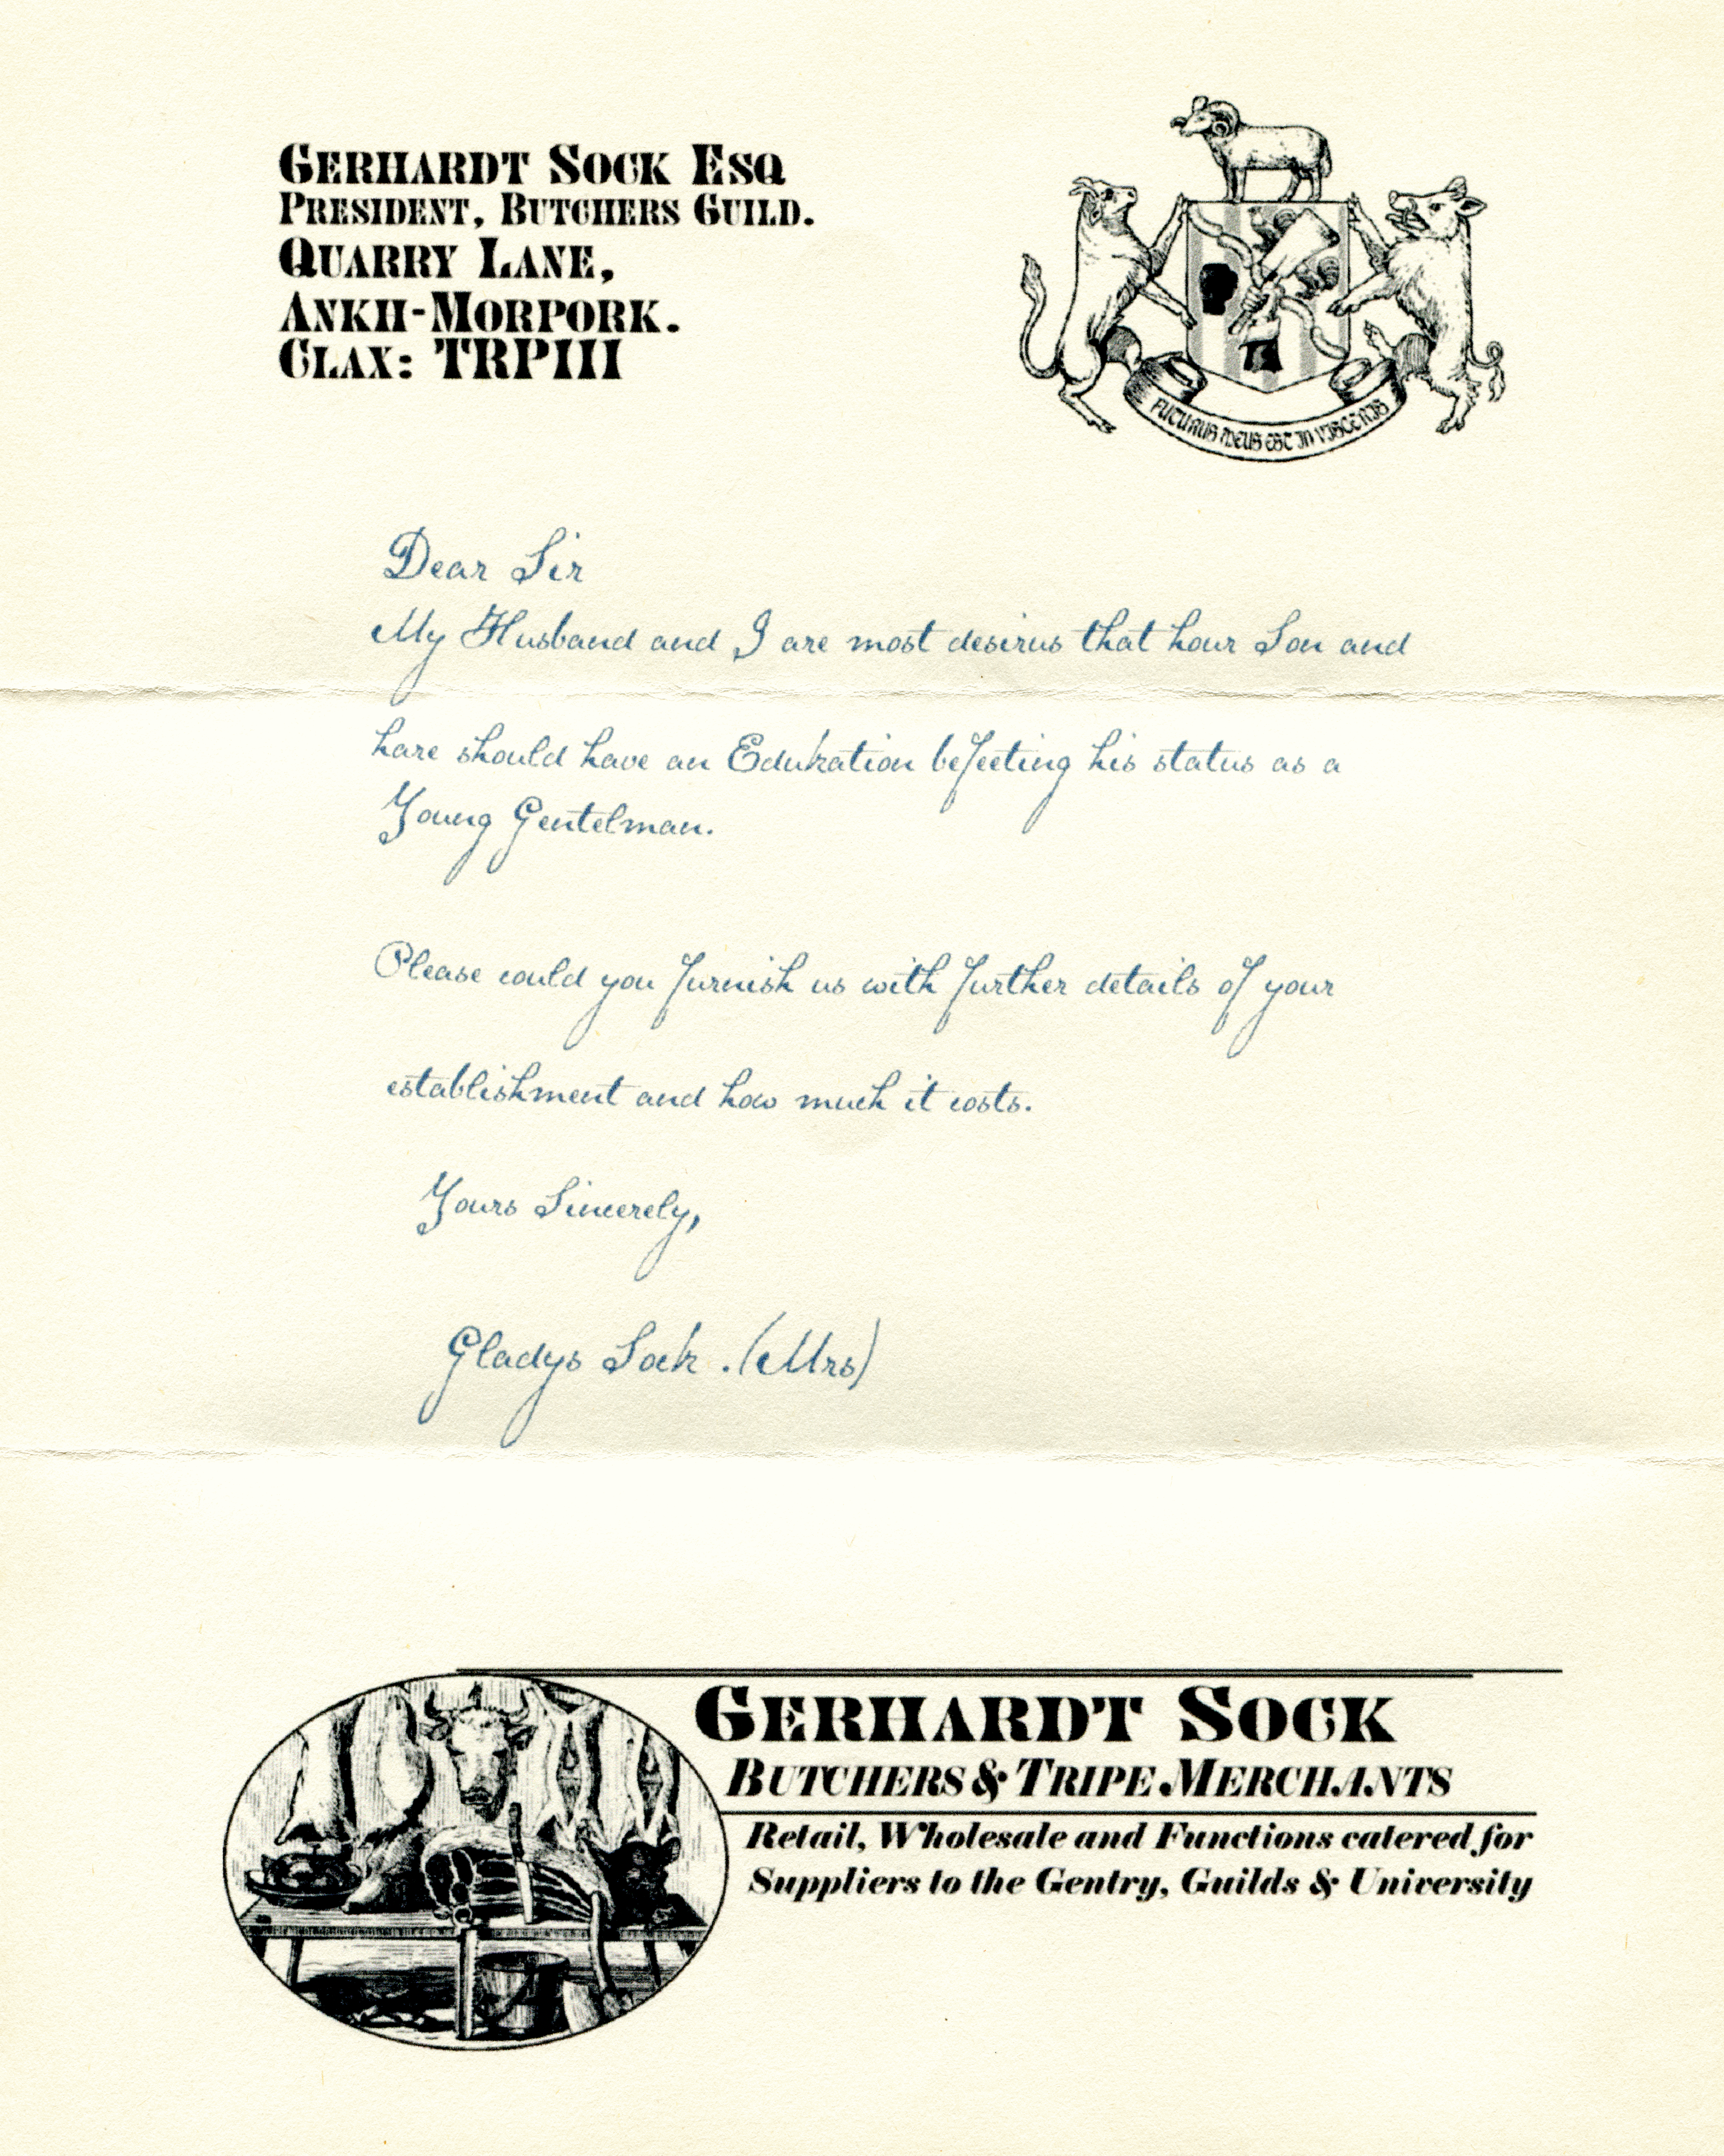 GERHARDT SOCK ESQ
PRESIDENT, BUTCHERS GUILD.
QUARRY LANE,
ANKH-MORPORK.
CLAX: TRPIII
FUTURUS MEUS EST IN VISCERIS
Dear Sir
My Husband and I are most desirus that hour Son and
hare should have an Edukation befeeting his status as a
Young Gentelman.
Please could you furnish us with further details of your
establishment and how much it costs.
Yours Sincerely,
Gladys Sock. (Mrs)
GERHARDT SOCK
BUTCHERS & TRIPE MERCHANTS
Retail, Wholesale and Functions catered for
Suppliers to the Gentry, Guilds & University